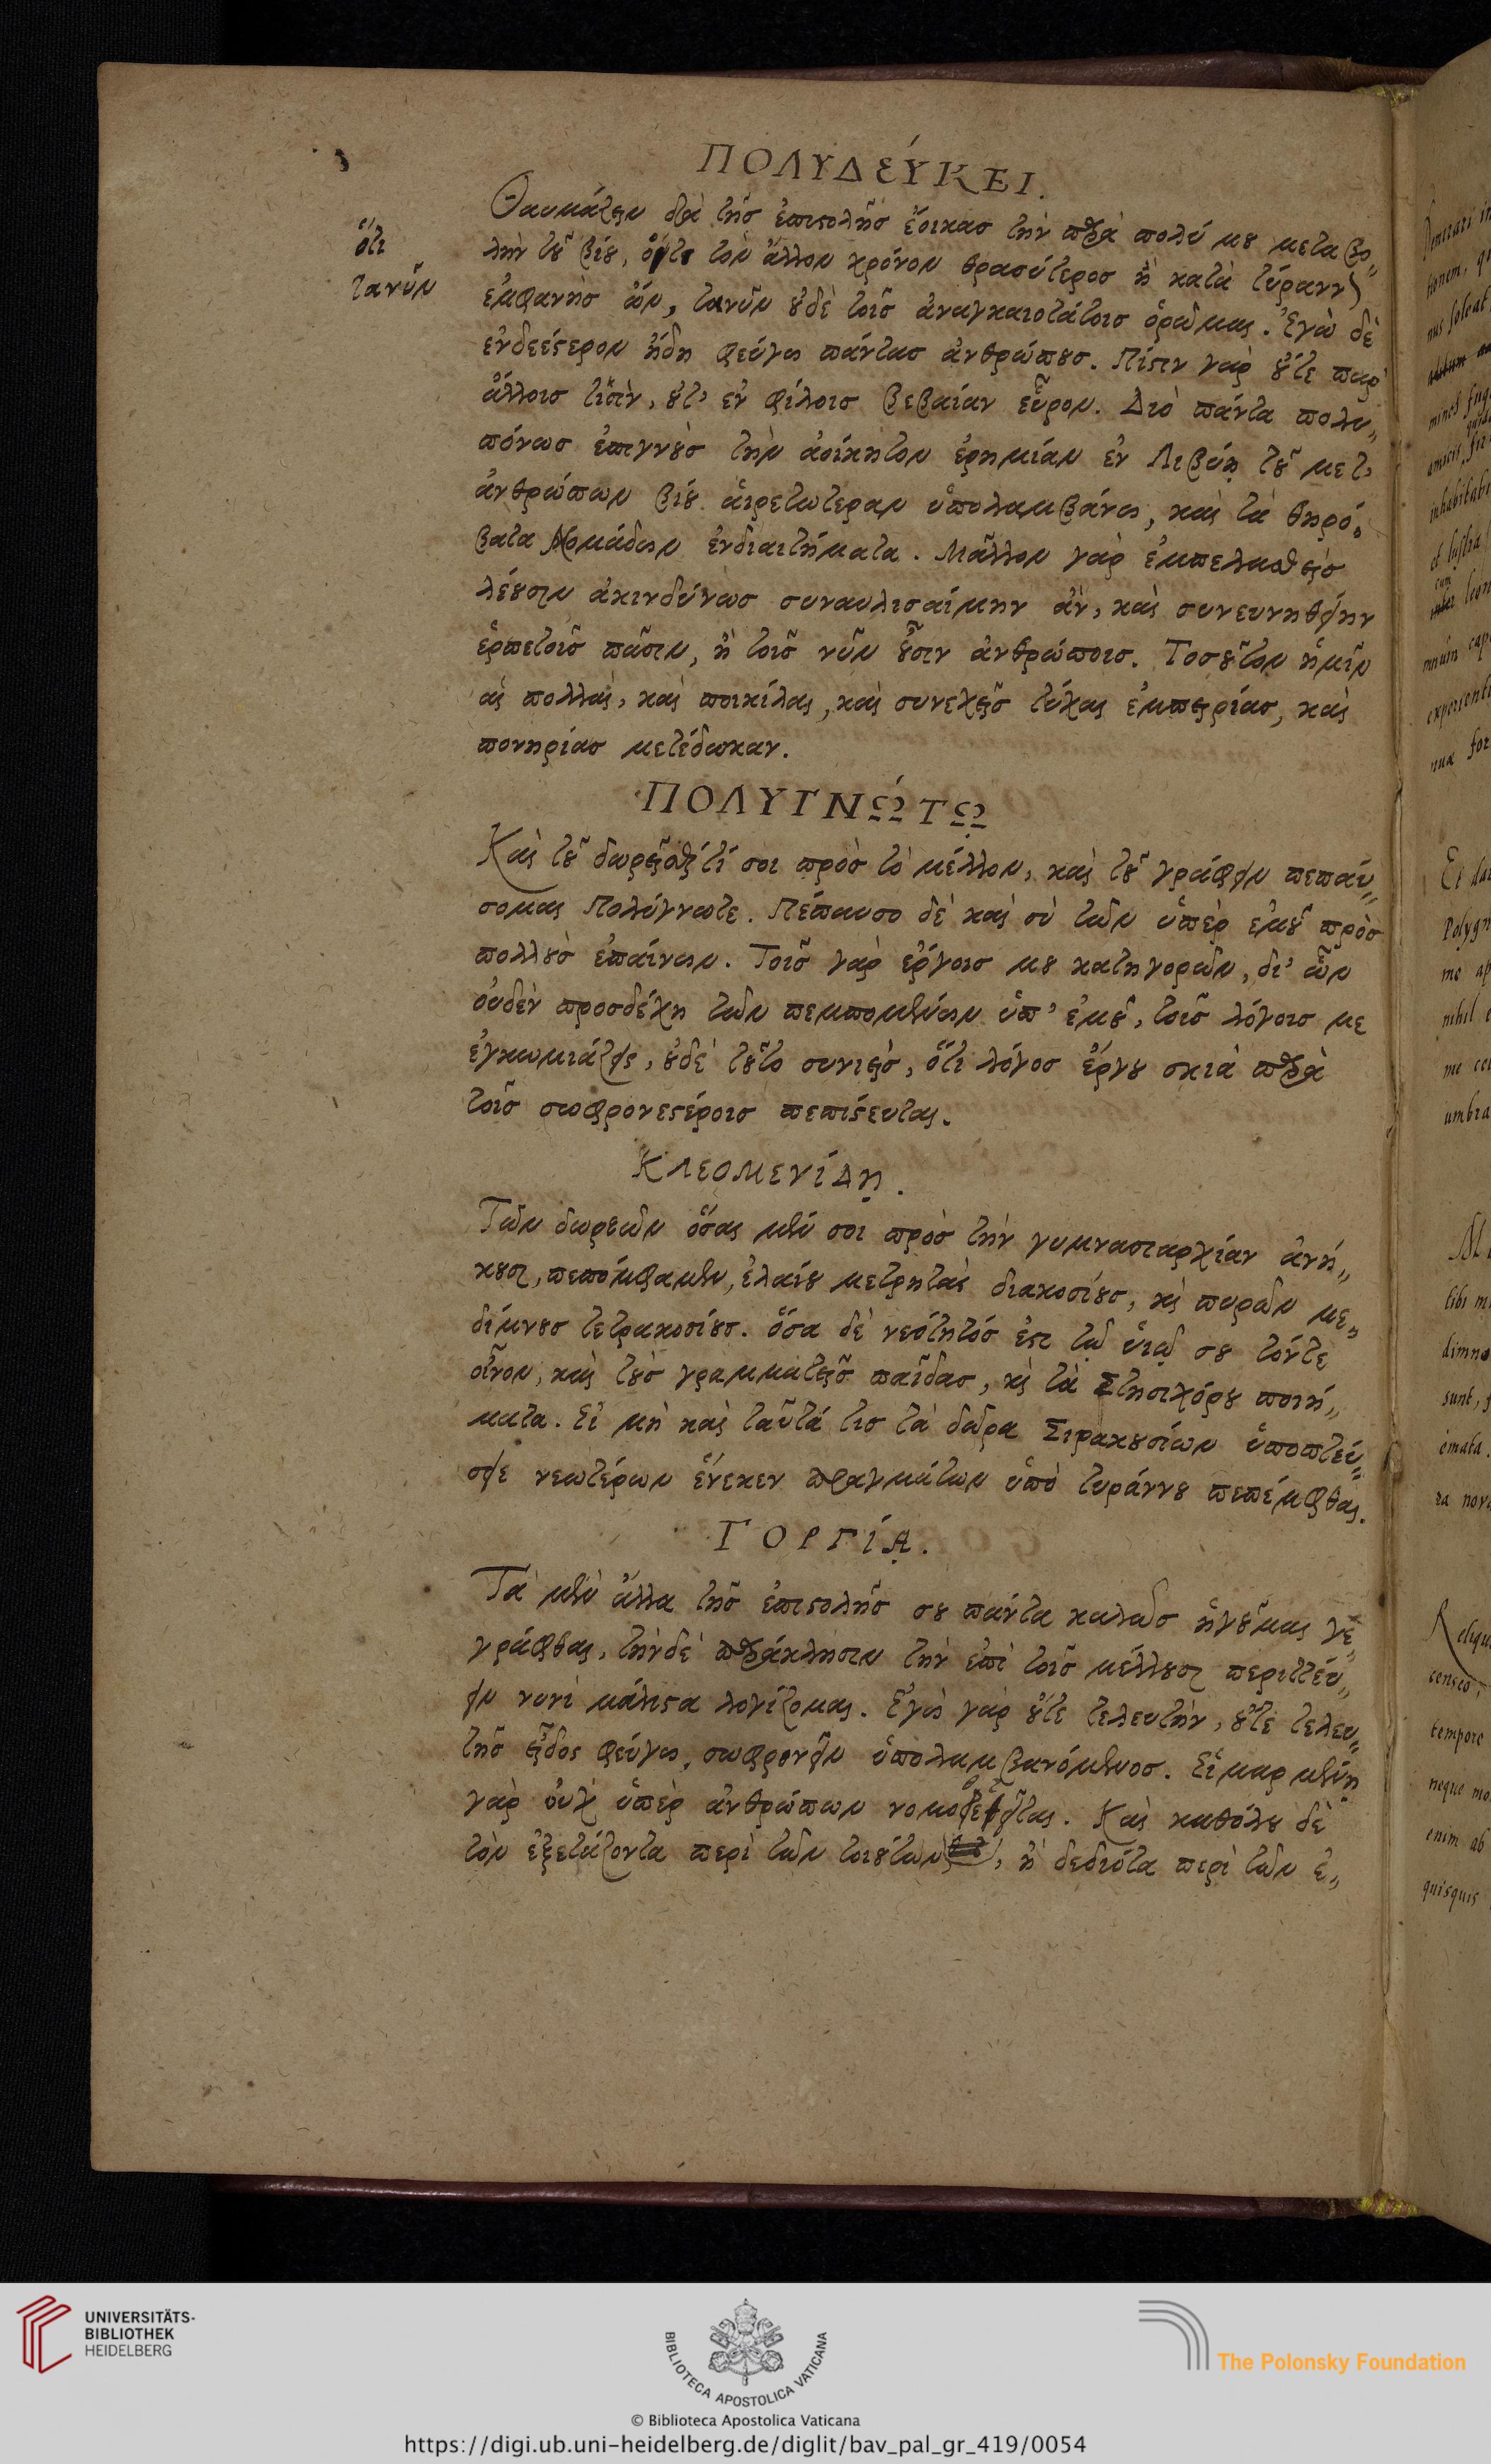 ΠΟΛΥΔΕΎΚΕΙ.
Θαυμάζειν διὰ τῆς ἐπιστολῆς ἔοικας τὴν παρὰ πολύ μου μεταβο„
ὅτι
λὴν τοῦ βίου, ὅτι τὸν ἄλλον χρόνον θρασύτερος ἢ κατὰ τύρανν
τανῦν
ἐμφανὴς ὢν, τανῦν οὐδὲ τοῖς ἀναγκαιοτάτοις ὁρῶμαι. Ἐγὼ δὲ
ἐνδεέστερον ἤδη φεύγω πάντας ἀνθρώπους. Πίστιν γὰρ οὔτε παρ'
ἄλλοις τισὶν, οὔτ' ἐν φίλοις βεβαίαν εὗρον. Διὸ πάντα πολυ„
πόνως ἐπιγνοὺς τὴν ἀοίκητον ἐρημίαν ἐν Λιβύῃ τοῦ μετ'
ἀνθρώπων βίου αἱρετωτέραν ὑπολαμβάνω, καὶ τὰ θηρό„
βατα Νομάδων ἐνδιαιτήματα. Μᾶλλον γὰρ ἐμπελασθεὶς
λέουσιν ἀκινδύνως συναυλισαίμην ἂν, καὶ συνευνηθείην
ἑρπετοῖς πᾶσιν, ἢ τοῖς νῦν οὖσιν ἀνθρώποις. Τοσοῦτον ἡμῖν
αἱ πολλαὶ, καὶ ποικίλαι, καὶ συνεχεῖς τύχαι ἐμπειρίας, καὶ
πονηρίας μετέδωκαν.
ΠΟΛΥΓΝΏΤῼ
Καὶ τοῦ δωρεῖσθαί τί σοι πρὸς τὸ μέλλον, καὶ τοῦ γράφειν πεπαύ„
σομαι Πολύγνωτε. Πέπαυσο δὲ καὶ σὺ τῶν ὑπὲρ ἐμοῦ πρὸς
πολλοὺς ἐπαίνων. Τοῖς γὰρ ἔργοις μου κατηγορῶν, δι' ὧν
οὐδὲν προσδέχῃ τῶν πεμπομένων ὑπ' ἐμοῦ, τοῖς λόγοις με
ἐγκωμιάζεις, οὐδὲ τοῦτο συνιεὶς, ὅτι λόγος ἔργου σκιὰ παρὰ
τοῖς σωφρονεστέροις πεπίστευται.
ΚΛΕΟΜΕΝΊΔῌ.
Τῶν δωρεῶν ὅσαι μέν σοι πρὸς τὴν γυμνασιαρχίαν ἀνή„
κουσι, πεπόμφαμεν, ἐλαίου μετρητὰς διακοσίους, καὶ πυρῶν με„
δίμνους τετρακοσίους. ὅσα δὲ νεότητός ἐστι τῷ υἱῷ σου τόντε
οἶνον, καὶ τοὺς γραμματεῖς παῖδας, καὶ τὰ Στησιχόρου ποιή„
ματα. Εἰ μὴ καὶ ταῦτά τις τὰ δῶρα Σιρακουσίων ὑποπτεύ„
σειε νεωτέρων ἕνεκεν πραγμάτων ὑπὸ τυράννου πεπέμφθαι.
ΓΟΡΓΊᾼ.
Τὰ μὲν ἄλλα τῆς ἐπιστολῆς σου πάντα καλῶς ἡγοῦμαι γε„
γράφθαι, τὴνδὲ παράκλησιν τὴν ἐπὶ τοῖς μέλλουσι περιττεύ„
ειν νυνὶ μάλιστα λογίζομαι. Ἐγὼ γὰρ οὔτε τελευτὴν, οὔτε τελευ„
τῆς εἶδος φεύγω, σωφρονεῖν ὑπολαμβανόμενος. Εἱμαρμένῃ
γὰρ οὐχ ὑπὲρ ἀνθρώπων νομοθετεῖται. Καὶ καθόλου δὲ
τὸν ἐξετάζοντα περὶ τῶν τοιούτων, ἢ δεδιότα περὶ τῶν ἐ„
UNIVERSITÄTS-
BIBLIOTHEK
HEIDELBERG
BIBLIOTECA APOSTOLICA VATICANA
© Biblioteca Apostolica Vaticana
The Polonsky Foundation
https://digi.ub.uni-heidelberg.de/diglit/bav_pal_gr_419/0054